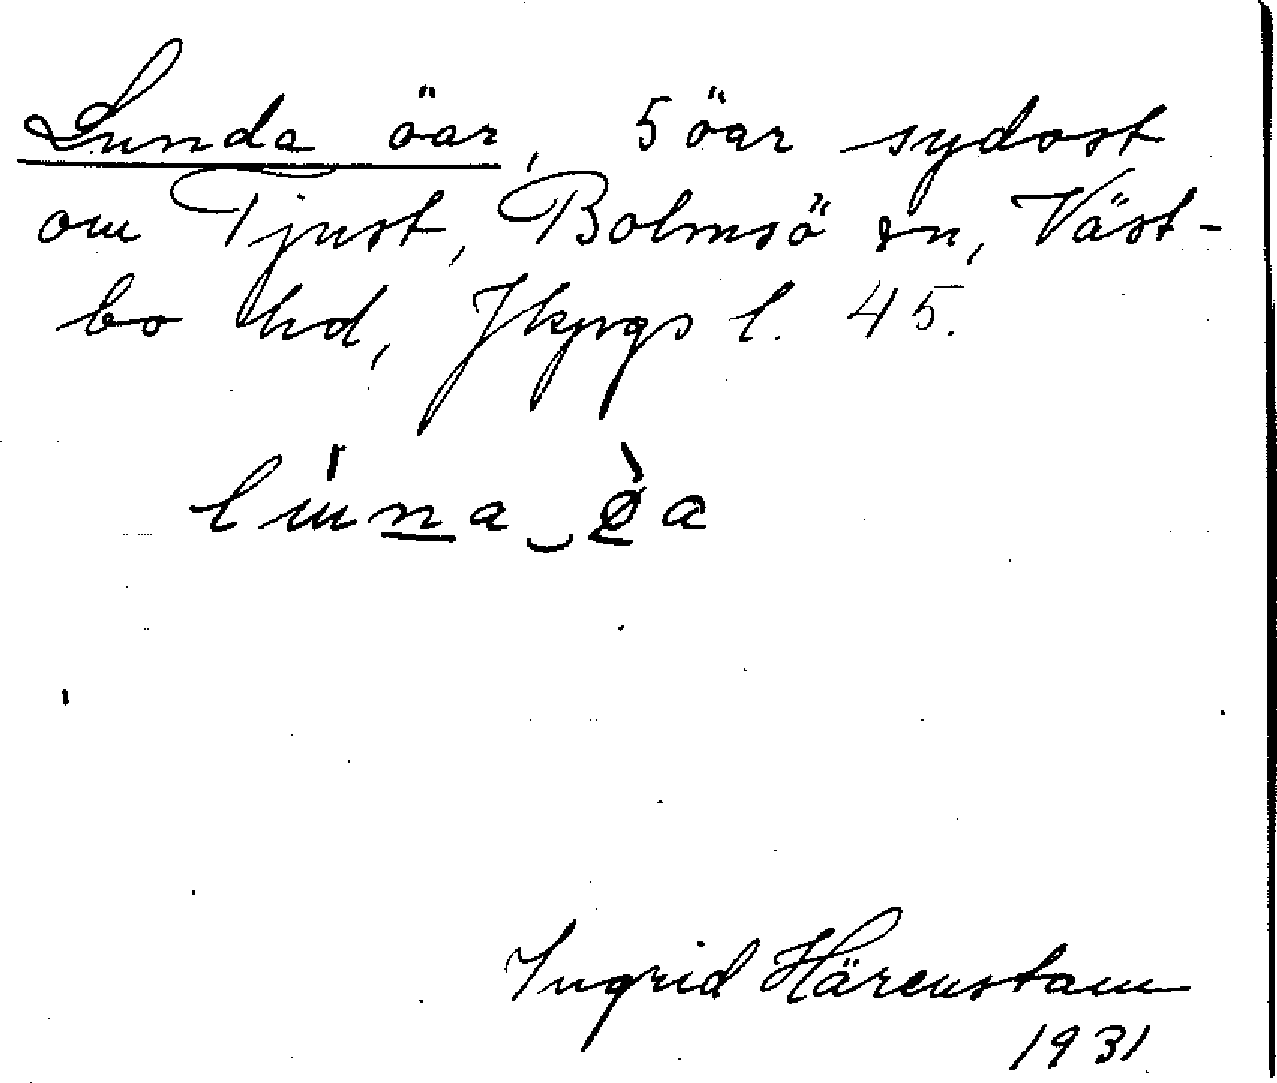 Lunda öar, 5 öar sydost
om Tjust, Bolmsö sn, Väst-
bo hd, Jkpgs l. 45.
Ingrid Härenstam
1931